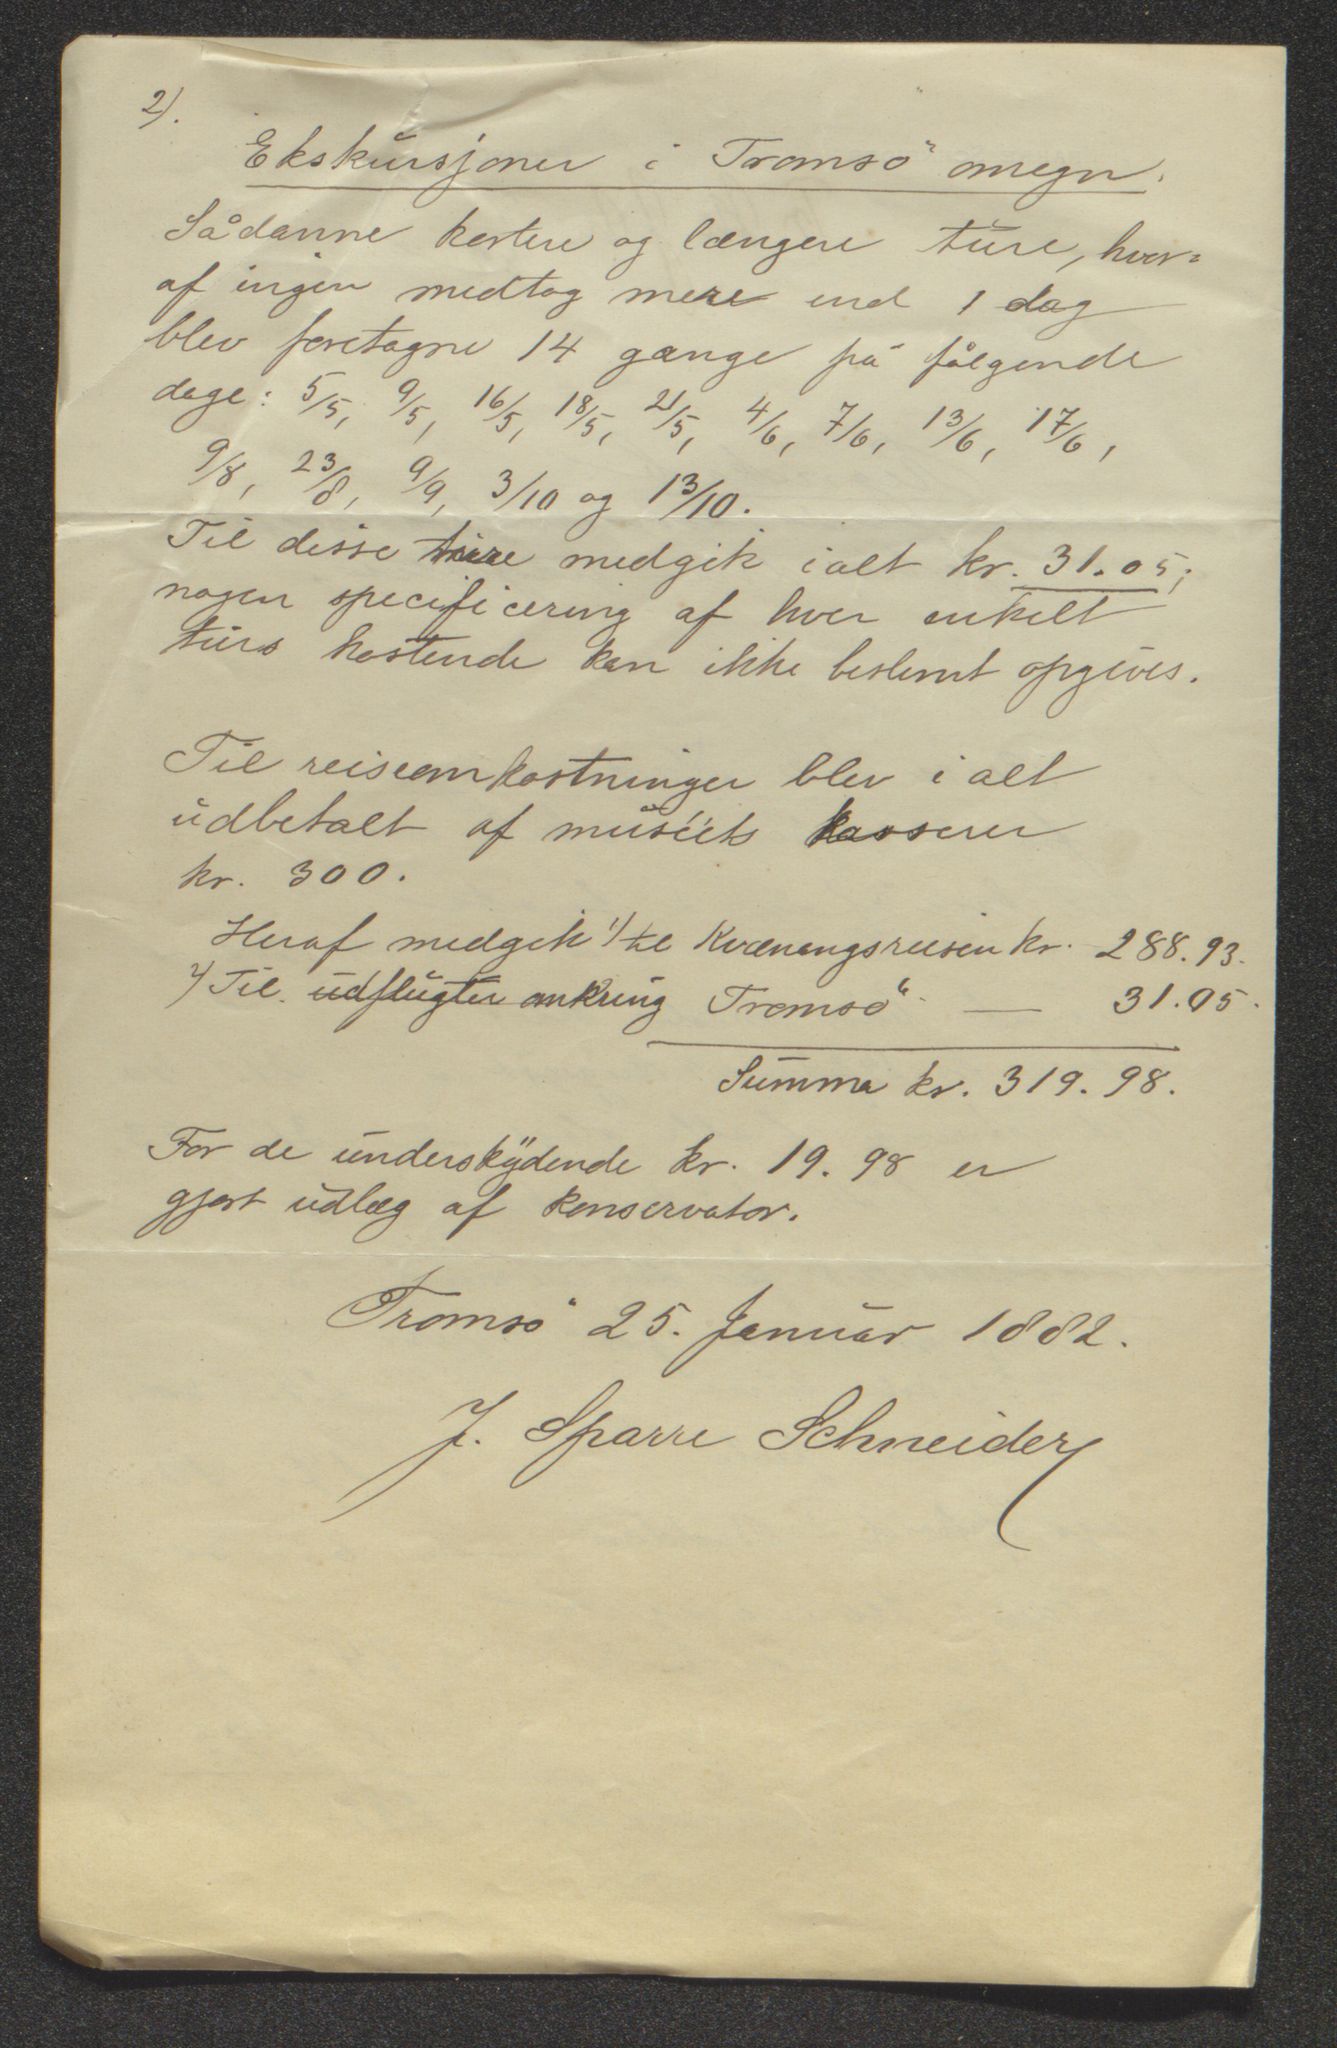 2).
Ekskursjoner i Tromsö omegn.
Sådanne kortere og længere ture, hvor=
af ingen medtog mere end 1 dag
blev foretagne 14 gange på følgende
dage: 5/5, 9/5, 16/5, 18/5, 21/5, 4/6, 7/6, 13/6, 17/6,
9/8, 23/8, 9/9, 3/10 og 13/10.
Til disse ture medgik ialt kr. 31.05;
nogen specificering af hver enkelt
turs kostende kan ikke bestemt opgives.
Til reiseomkostninger blev i alt
udbetalt af muséets kasserer
kr. 300.
Heraf medgik 1) til Kvænangsreisen kr. 288.93.
2) Til udflugter omkring Tromsö — 31.05.
Summa kr. 319.98.
For de underskydende kr. 19.98 er
gjort udlæg af konservator.
Tromsö 25. Januar 1882.
J. Sparre Schneider